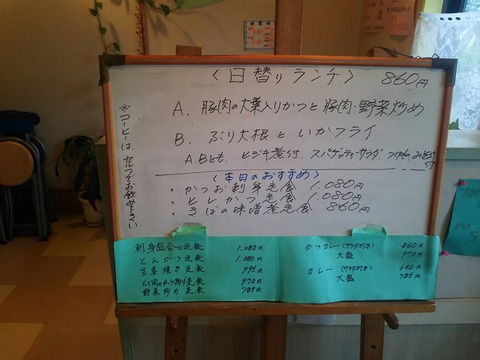 〈日替りランチ〉 860円
A. 豚肉の大葉入りかつと豚肉・野菜炒め
B. ぶり大根といかフライ
A.Bとも、ヒジキ煮付、スパゲッティサラダ
〈本日のおすすめ〉
・かつお刺身定食 1.080円
・ヒレかつ定食 1.080円
・さばの味噌煮定食 860円
※コーヒーは、セルフでお飲み下さい。
刺身盛合せ定食 1.080円
とんかつ定食 1.080円
生姜焼き定食 995円
970円
野菜炒め定食 785円
かつカレー(サラダ付き) 860円
大盛 970円
カレー(サラダ付き) 640円
大盛 785円